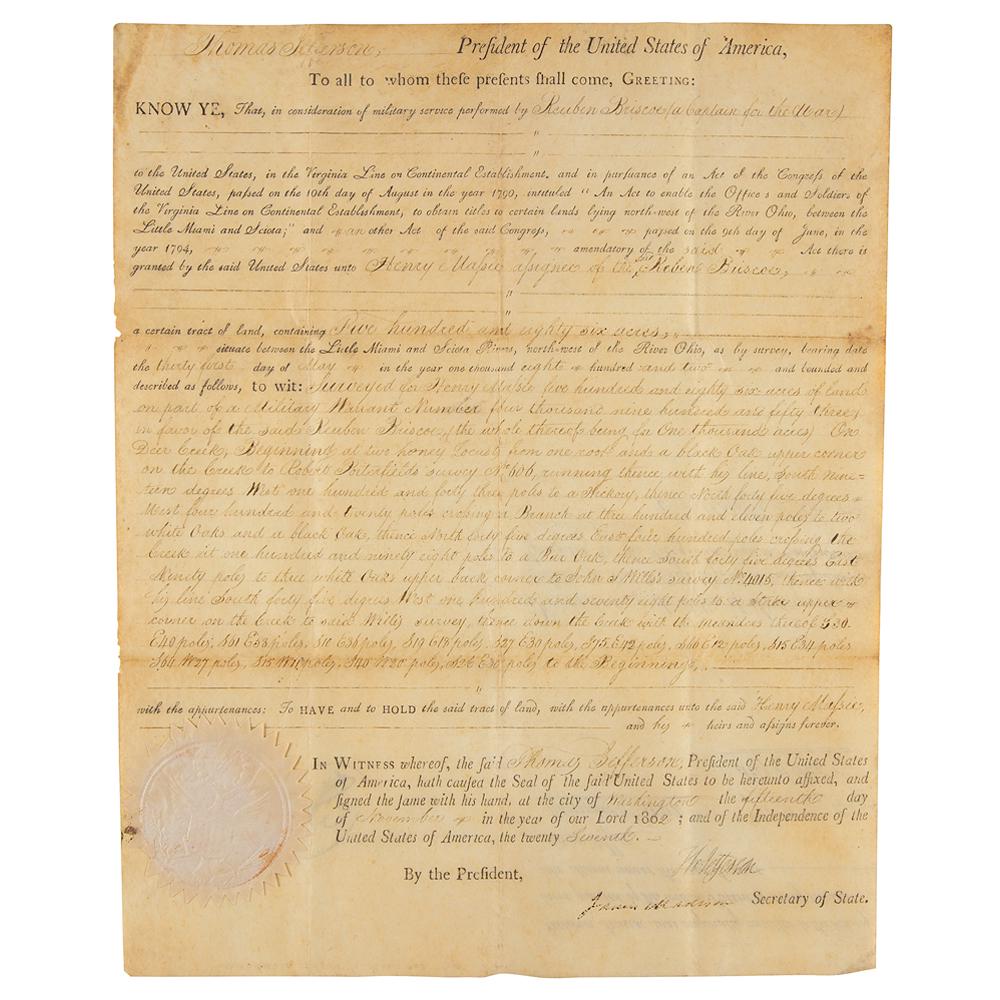 Thomas Jefferson, President of the United States of America,
To all to whom these presents shall come, GREETING:
KNOW YE, That, in consideration of military service performed by Reuben Briscoe (a Captain for the War)
to the United States, in the Virginia Line on Continental Establishment, and in pursuance of an Act of the Congress of the
United States, passed on the 10th day of August in the year 1790, intituled "An Act to enable the Officers and Soldiers of
the Virginia Line on Continental Establishment, to obtain titles to certain lands lying north-west of the River Ohio, between the
Little Miami and Sciota;" and an other Act of the said Congress, passed on the 9th day of June, in the
year 1794, amendatory of the said Act there is
granted by the said United States unto Henry Massie assignee of the said Reuben Briscoe,
a certain tract of land, containing Five hundred and eighty six acres,
situate between the Little Miami and Sciota Rivers, north-west of the River Ohio, as by survey, bearing date
the thirty first day of May in the year one thousand eight hundred and two and bounded and
described as follows, to wit: Surveyed for Henry Massie five hundred and eighty six acres of land
on part of a Military Warrant Number four thousand nine hundred and fifty three,
in favor of the said Reuben Briscoe, (the whole thereof being for One thousand acres) On
Deer Creek, Beginning at two honey Locusts from one root and a black Oak upper corner
on the Creek to Robert survey No. 606, running thence with his line, South nine-
teen degrees West one hundred and forty three poles to a Hickory, thence North forty five degrees
West four hundred and twenty poles crossing a Branch at three hundred and eleven poles to two
white Oaks and a black Oak, thence North forty five degrees East four hundred poles crossing the
Creek at one hundred and ninety eight poles to a Bur Oak, thence South forty five degrees East
Ninety poles to three white Oaks upper back corner to John Wills's survey No. 4015, thence with
his line South forty five degrees West one hundred and seventy eight poles to a Stake upper
corner on the Creek to said Wills's survey, thence down the Creek with the meanders thereof S30
E40 poles, S61 E58 poles, S10 E36 poles, S19 E18 poles, S27 E30 poles, S75 E42 poles, S60 E12 poles, S15 E34 poles
S64 W27 poles, S15 W10 poles, S40 W20 poles, S26 E30 poles to the Beginning,
with the appurtenances: To HAVE and to HOLD the said tract of land, with the appurtenances unto the said Henry Massie,
and his heirs and assigns forever.
IN WITNESS whereof, the said Thomas Jefferson, President of the United States
of America, hath caused the Seal of the said United States to be hereunto affixed, and
signed the same with his hand, at the city of Washington the fifteenth day
of November in the year of our Lord 1802; and of the Independence of the
United States of America, the twenty Seventh.
Th Jefferson
By the President,
James Madison Secretary of State.